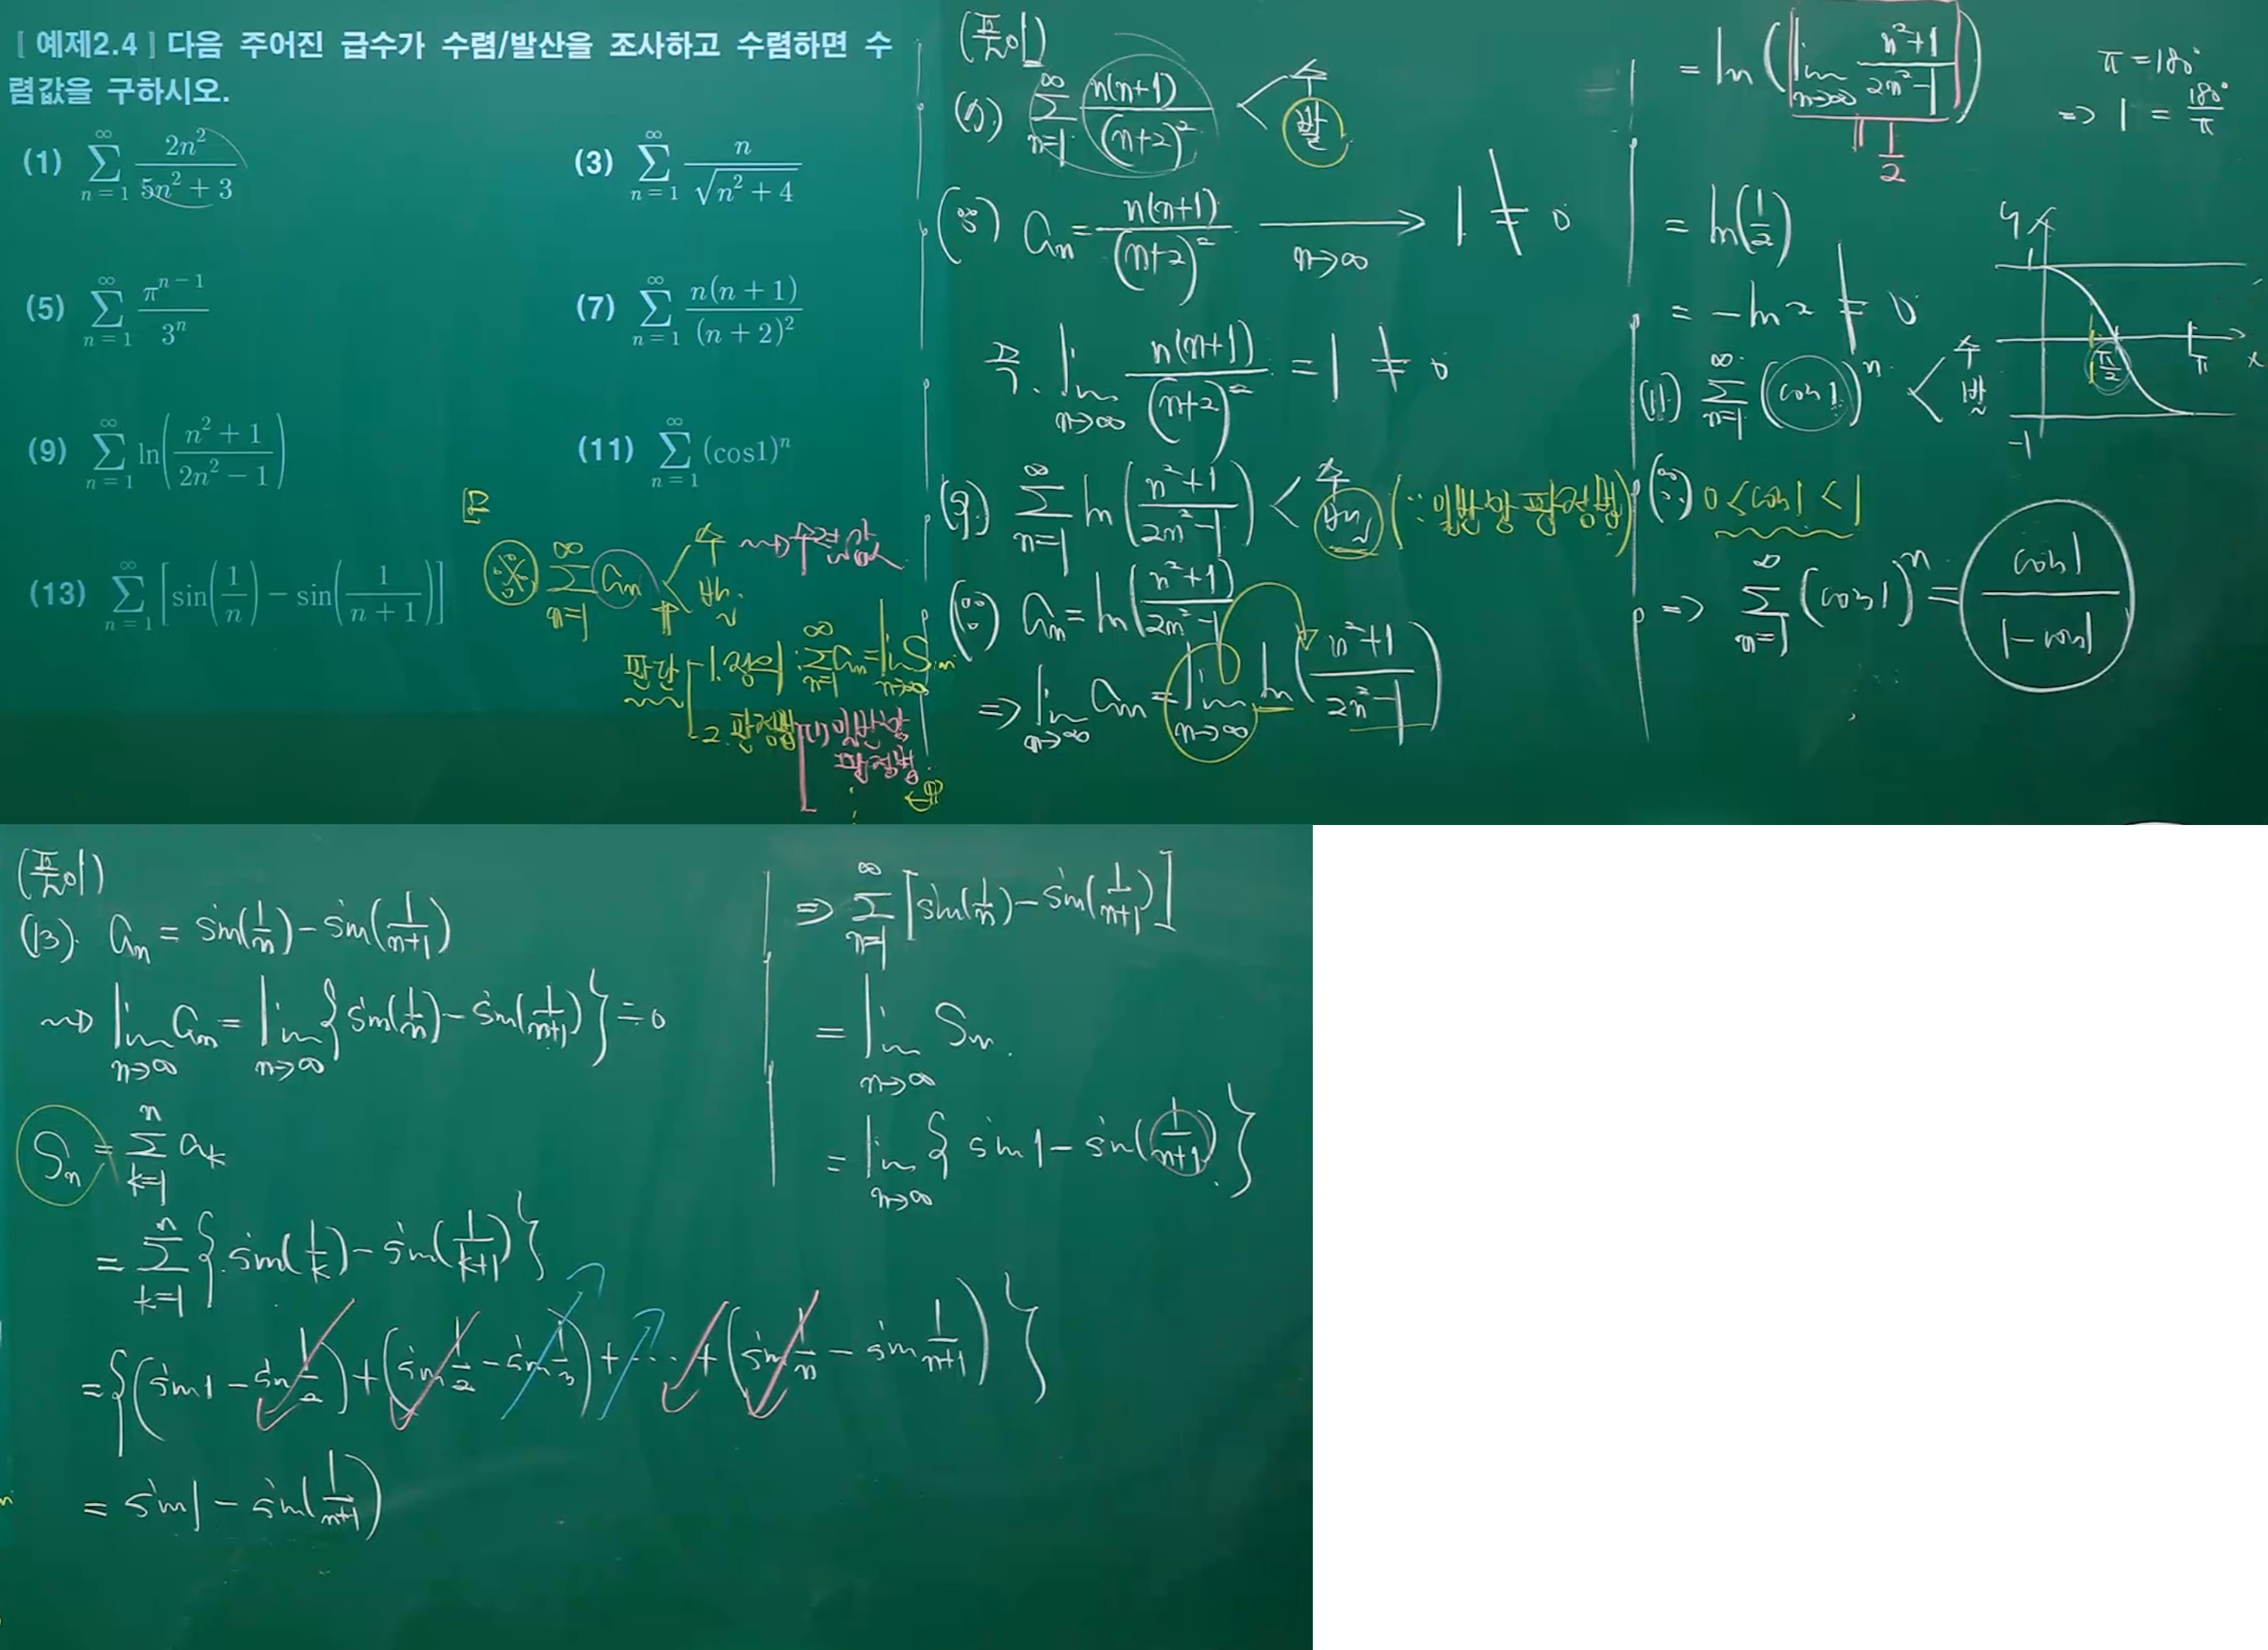 [ 예제2.4 ] 다음 주어진 급수가 수렴/발산을 조사하고 수렴하면 수
렴값을 구하시오.
(1) \sum_{n=1}^{∞} \frac{2n^2}{5n^2+3}
(3) \sum_{n=1}^{∞} \frac{n}{\sqrt{n^2+4}}
(5) \sum_{n=1}^{∞} \frac{π^{n-1}}{3^n}
(7) \sum_{n=1}^{∞} \frac{n(n+1)}{(n+2)^2}
(9) \sum_{n=1}^{∞} ln(\frac{n^2+1}{2n^2-1})
(11) \sum_{n=1}^{∞} (cos1)^n
(13) \sum_{n=1}^{∞} [sin(\frac{1}{n}) - sin(\frac{1}{n+1})]
※ \sum_{n=1}^{∞} a_n < 수 ⇝ 수렴값
발
판단 1. 정의 : \sum_{n=1}^{∞} a_n = \lim_{n→∞} S_n
2. 판정법 (1) 일반항
판정법
(풀이)
(7) \sum_{n=1}^{∞} \frac{n(n+1)}{(n+2)^2} < 수
발
(∵) a_n = \frac{n(n+1)}{(n+2)^2} \xrightarrow{n→∞} 1 ≠ 0
즉. \lim_{n→∞} \frac{n(n+1)}{(n+2)^2} = 1 ≠ 0
(9) \sum_{n=1}^{∞} ln(\frac{n^2+1}{2n^2-1}) < 수
발 (∵ 일반항 판정법)
(∵) a_n = ln(\frac{n^2+1}{2n^2-1})
⇒ \lim_{n→∞} a_n = \lim_{n→∞} ln(\frac{n^2+1}{2n^2-1})
= ln(\lim_{n→∞} \frac{n^2+1}{2n^2-1})
\frac{1}{2}
π = 180°
⇒ 1 = \frac{180°}{π}
= ln(\frac{1}{2})
= -ln2 ≠ 0
y
1
\frac{π}{2}
π
x
-1
(11) \sum_{n=1}^{∞} (cos1)^n < 수
발
(∵) 0 < cos1 < 1
⇒ \sum_{n=1}^{∞} (cos1)^n = \frac{cos1}{1-cos1}
(풀이)
(13) a_n = sin(\frac{1}{n}) - sin(\frac{1}{n+1})
⇝ \lim_{n→∞} a_n = \lim_{n→∞} {sin(\frac{1}{n}) - sin(\frac{1}{n+1})} = 0
S_n = \sum_{k=1}^{n} a_k
= \sum_{k=1}^{n} {sin(\frac{1}{k}) - sin(\frac{1}{k+1})}
= {(sin1 - sin\frac{1}{2}) + (sin\frac{1}{2} - sin\frac{1}{3}) + ... + (sin\frac{1}{n} - sin\frac{1}{n+1})}
= sin1 - sin(\frac{1}{n+1})
⇒ \sum_{n=1}^{∞} [sin(\frac{1}{n}) - sin(\frac{1}{n+1})]
= \lim_{n→∞} S_n.
= \lim_{n→∞} {sin1 - sin(\frac{1}{n+1})}